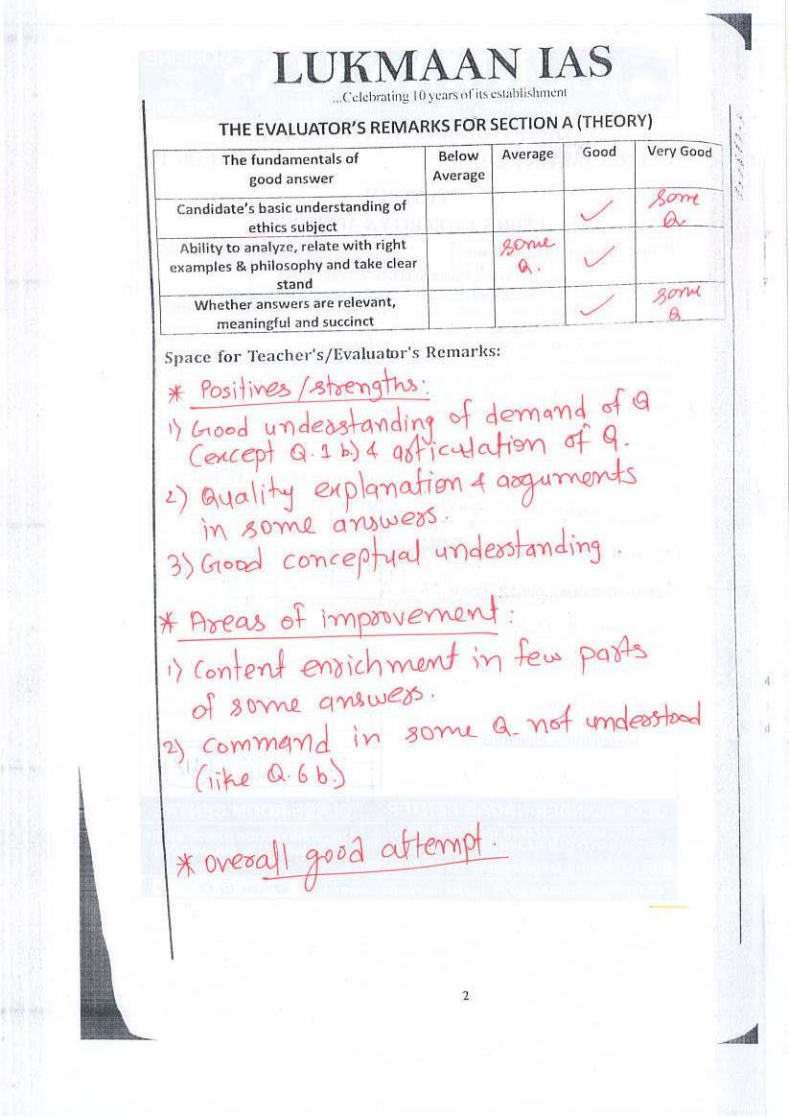 LUKMAAN IAS
...Celebrating 10 years of its establishment
THE EVALUATOR'S REMARKS FOR SECTION A (THEORY)
The fundamentals of good answer | Below Average | Average | Good | Very Good
Candidate's basic understanding of ethics subject | | | ✓ | Some Q.
Ability to analyze, relate with right examples & philosophy and take clear stand | | Some Q. | ✓ |
Whether answers are relevant, meaningful and succinct | | | ✓ | Some Q
Space for Teacher's/Evaluator's Remarks:
* Positives / strengths:
1) Good understanding of demand of Q
(except Q. 1 b) & articulation of Q.
2) Quality explanation & arguments
in some answers.
3) Good conceptual understanding.
* Areas of improvement:
1) Content enrichment in few parts
of some answers.
2) Command in some Q. not understood
(like Q. 6 b.)
* Overall good attempt.
2